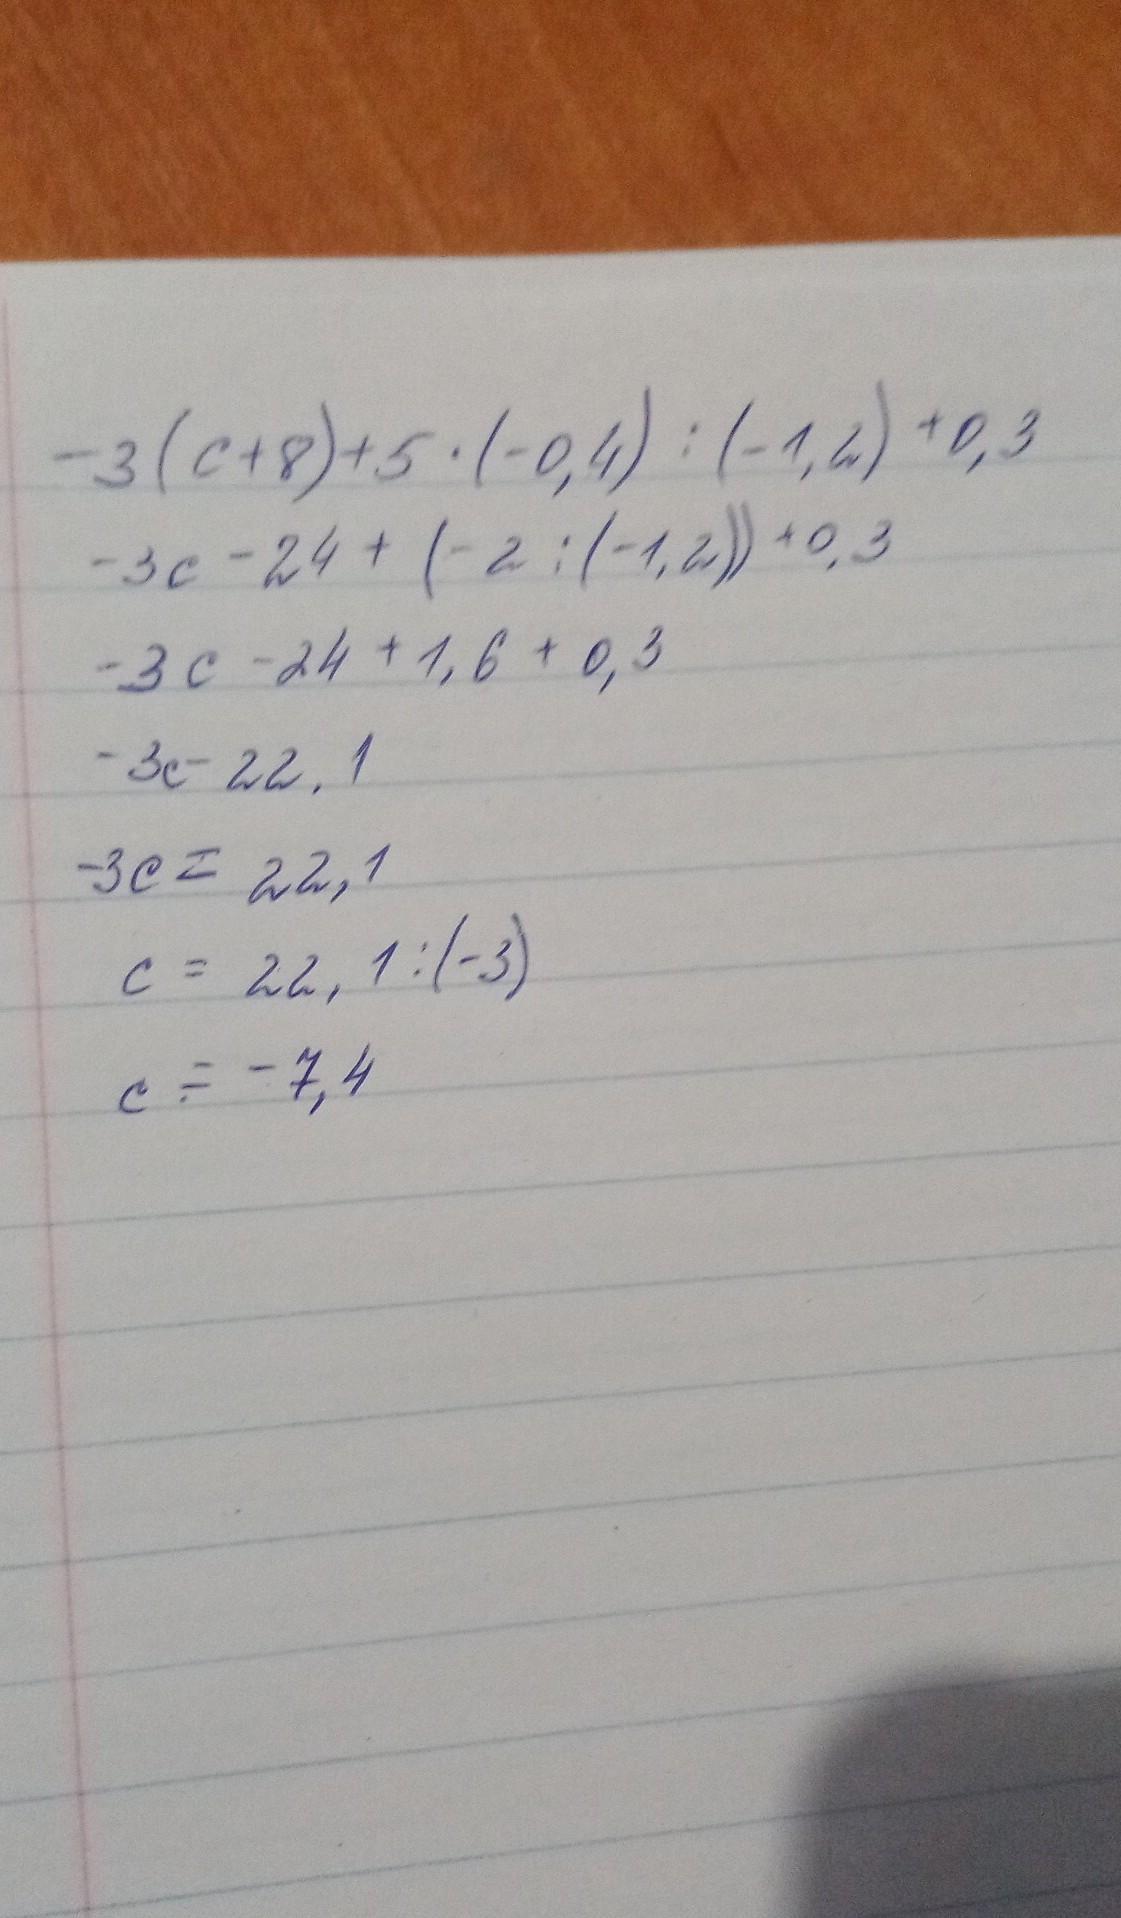 -3(c+8)+5·(-0,4):(-1,2)+0,3
-3c-24+(-2:(-1,2))+0,3
-3c-24+1,6+0,3
-3c-22,1
-3c=22,1
c=22,1:(-3)
c=-7,4